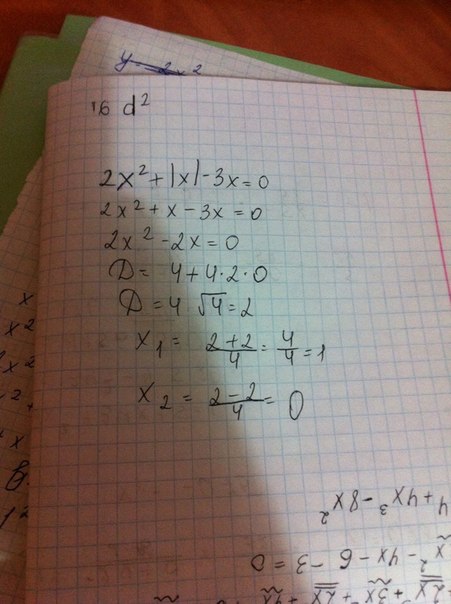 y = 2x²
16 d²
2x² + |x| - 3x = 0
2x² + x - 3x = 0
2x² - 2x = 0
D = 4 + 4·2·0
D = 4 √4 = 2
x₁ = (2+2)/4 = 4/4 = 1
x₂ = (2-2)/4 = 0
4 + 4x³ - 8x²
- 4x - 6 - 3 = 0